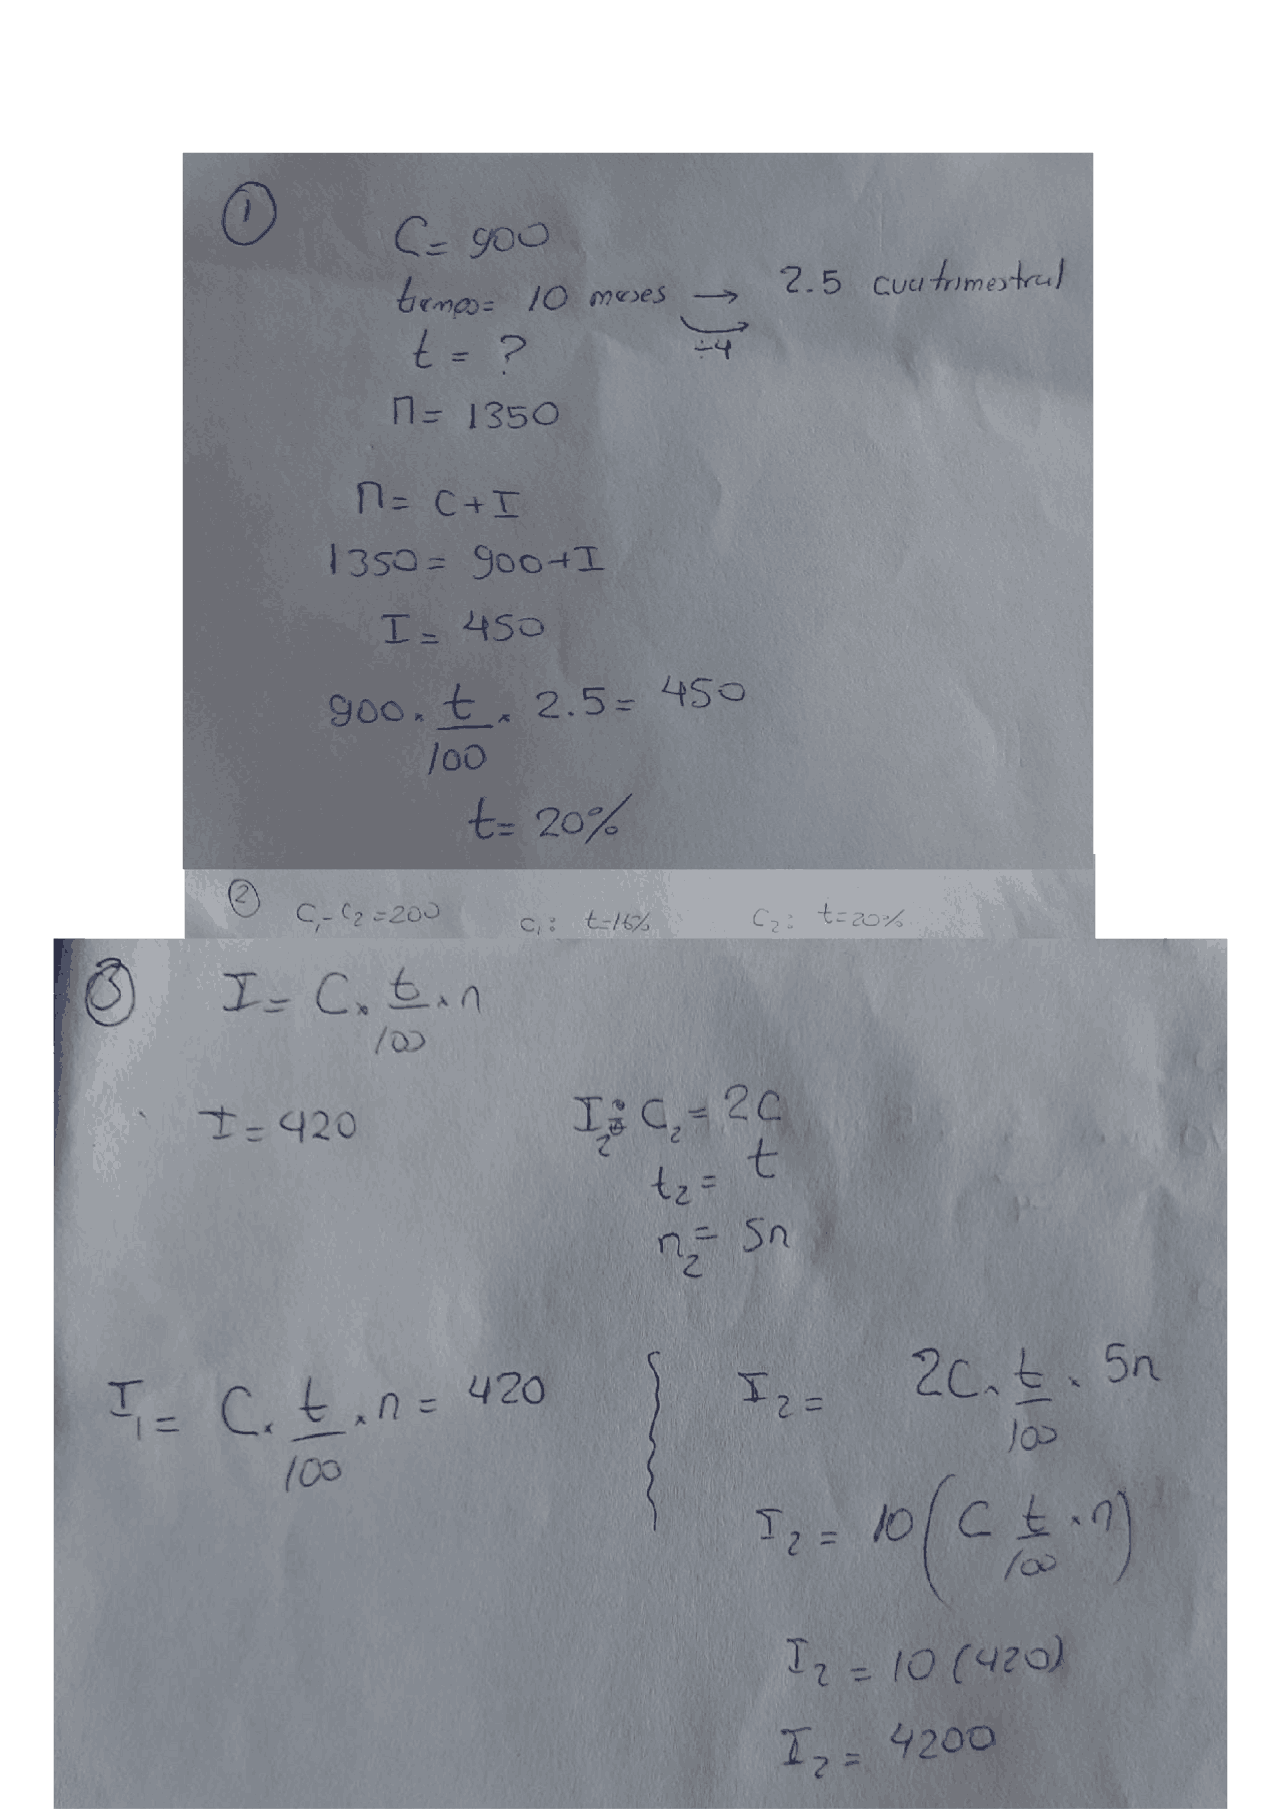 1
C = 900
tiempo = 10 meses → 2.5 cuatrimestral
÷4
t = ?
M = 1350
M = C + I
1350 = 900 + I
I = 450
900 . t/100 . 2.5 = 450
t = 20%
2 C₁ - C₂ = 200 C₁: t=16% C₂: t=20%
3 I = C . t/100 . n
I = 420 I₂: C₂ = 2C
t₂ = t
n₂ = 5n
I₁ = C . t/100 . n = 420 I₂ = 2C . t/100 . 5n
I₂ = 10 (C t/100 . n)
I₂ = 10 (420)
I₂ = 4200